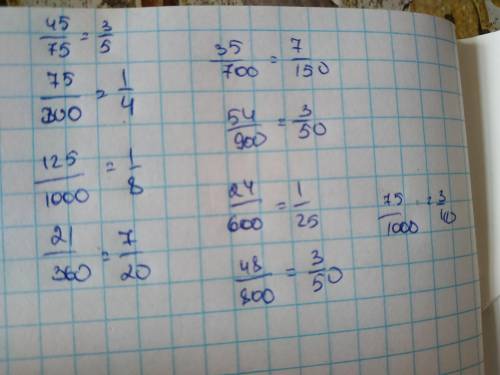 45/75 = 3/5
75/300 = 1/4
125/1000 = 1/8
21/360 = 7/20
35/700 = 7/150
54/900 = 3/50
24/600 = 1/25
48/800 = 3/50
75/1000 = 3/40